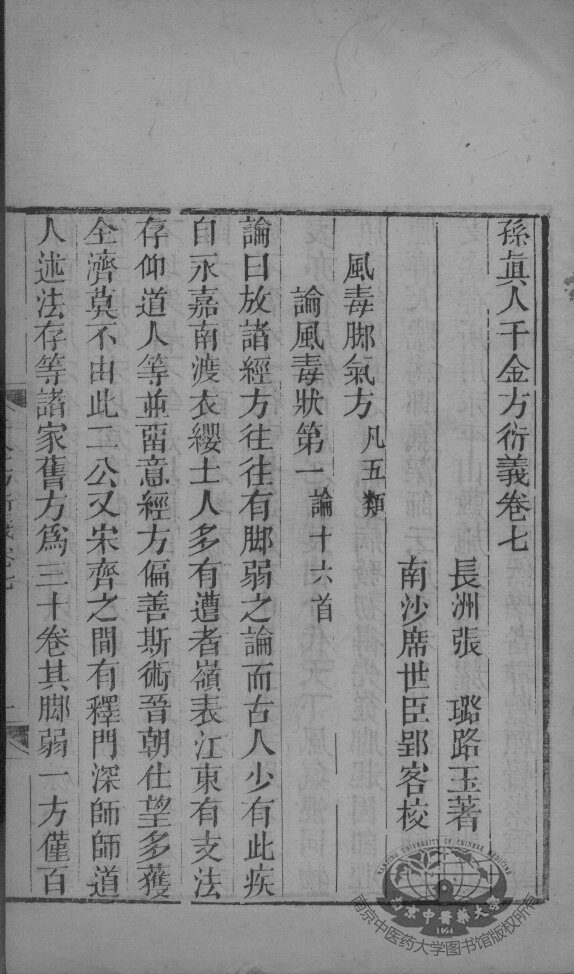 孫眞人千金方衍義卷七
長洲張　璐路玉著
南沙席世臣郢客校
風毒脚氣方凡五類
論風毒狀第一論十六首
論曰放諸經方往往有脚弱之論而古人少有此疾
自永嘉南渡衣纓士人多有遭者嶺表江東有支法
存仰道人等並畱意經方偏善斯術晉朝仕望多獲
全濟莫不由此二公又宋齊之間有釋門深師師道
人述法存等諸家舊方為三十卷其脚弱一方僅百
NANJING UNIVERSITY OF CHINESE MEDICINE
南京中醫藥大學
1954
南京中医药大学图书馆版权所有